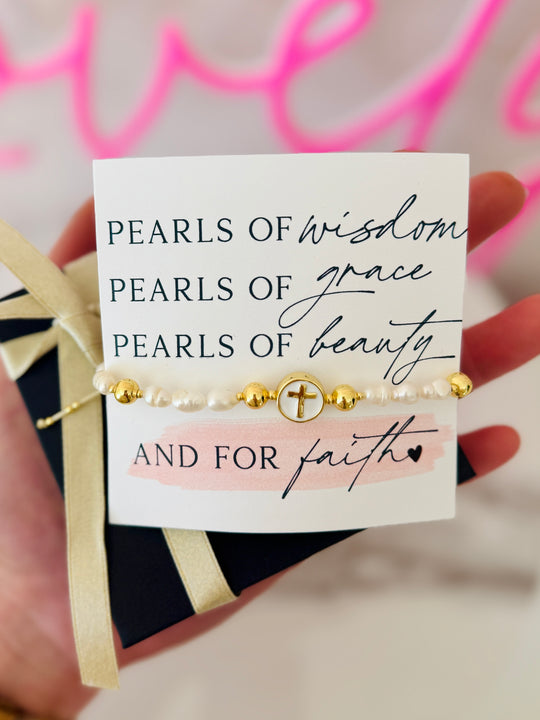 PEARLS OF wisdom
PEARLS OF grace
PEARLS OF beauty
AND FOR faith♥